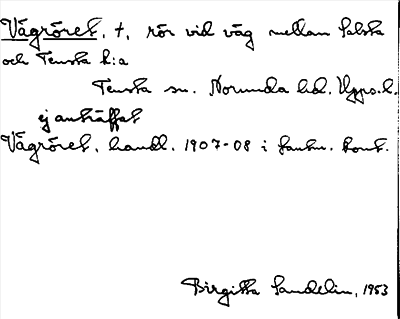 Vågröret, t, rör vid väg mellan Salsta
och Tensta k:a
Tensta sn. Norunda hd. Upps.l.
ej anträffat
Vågröret, handl. 1907-08 i lantm. kont.
Birgitta Sandelin, 1953